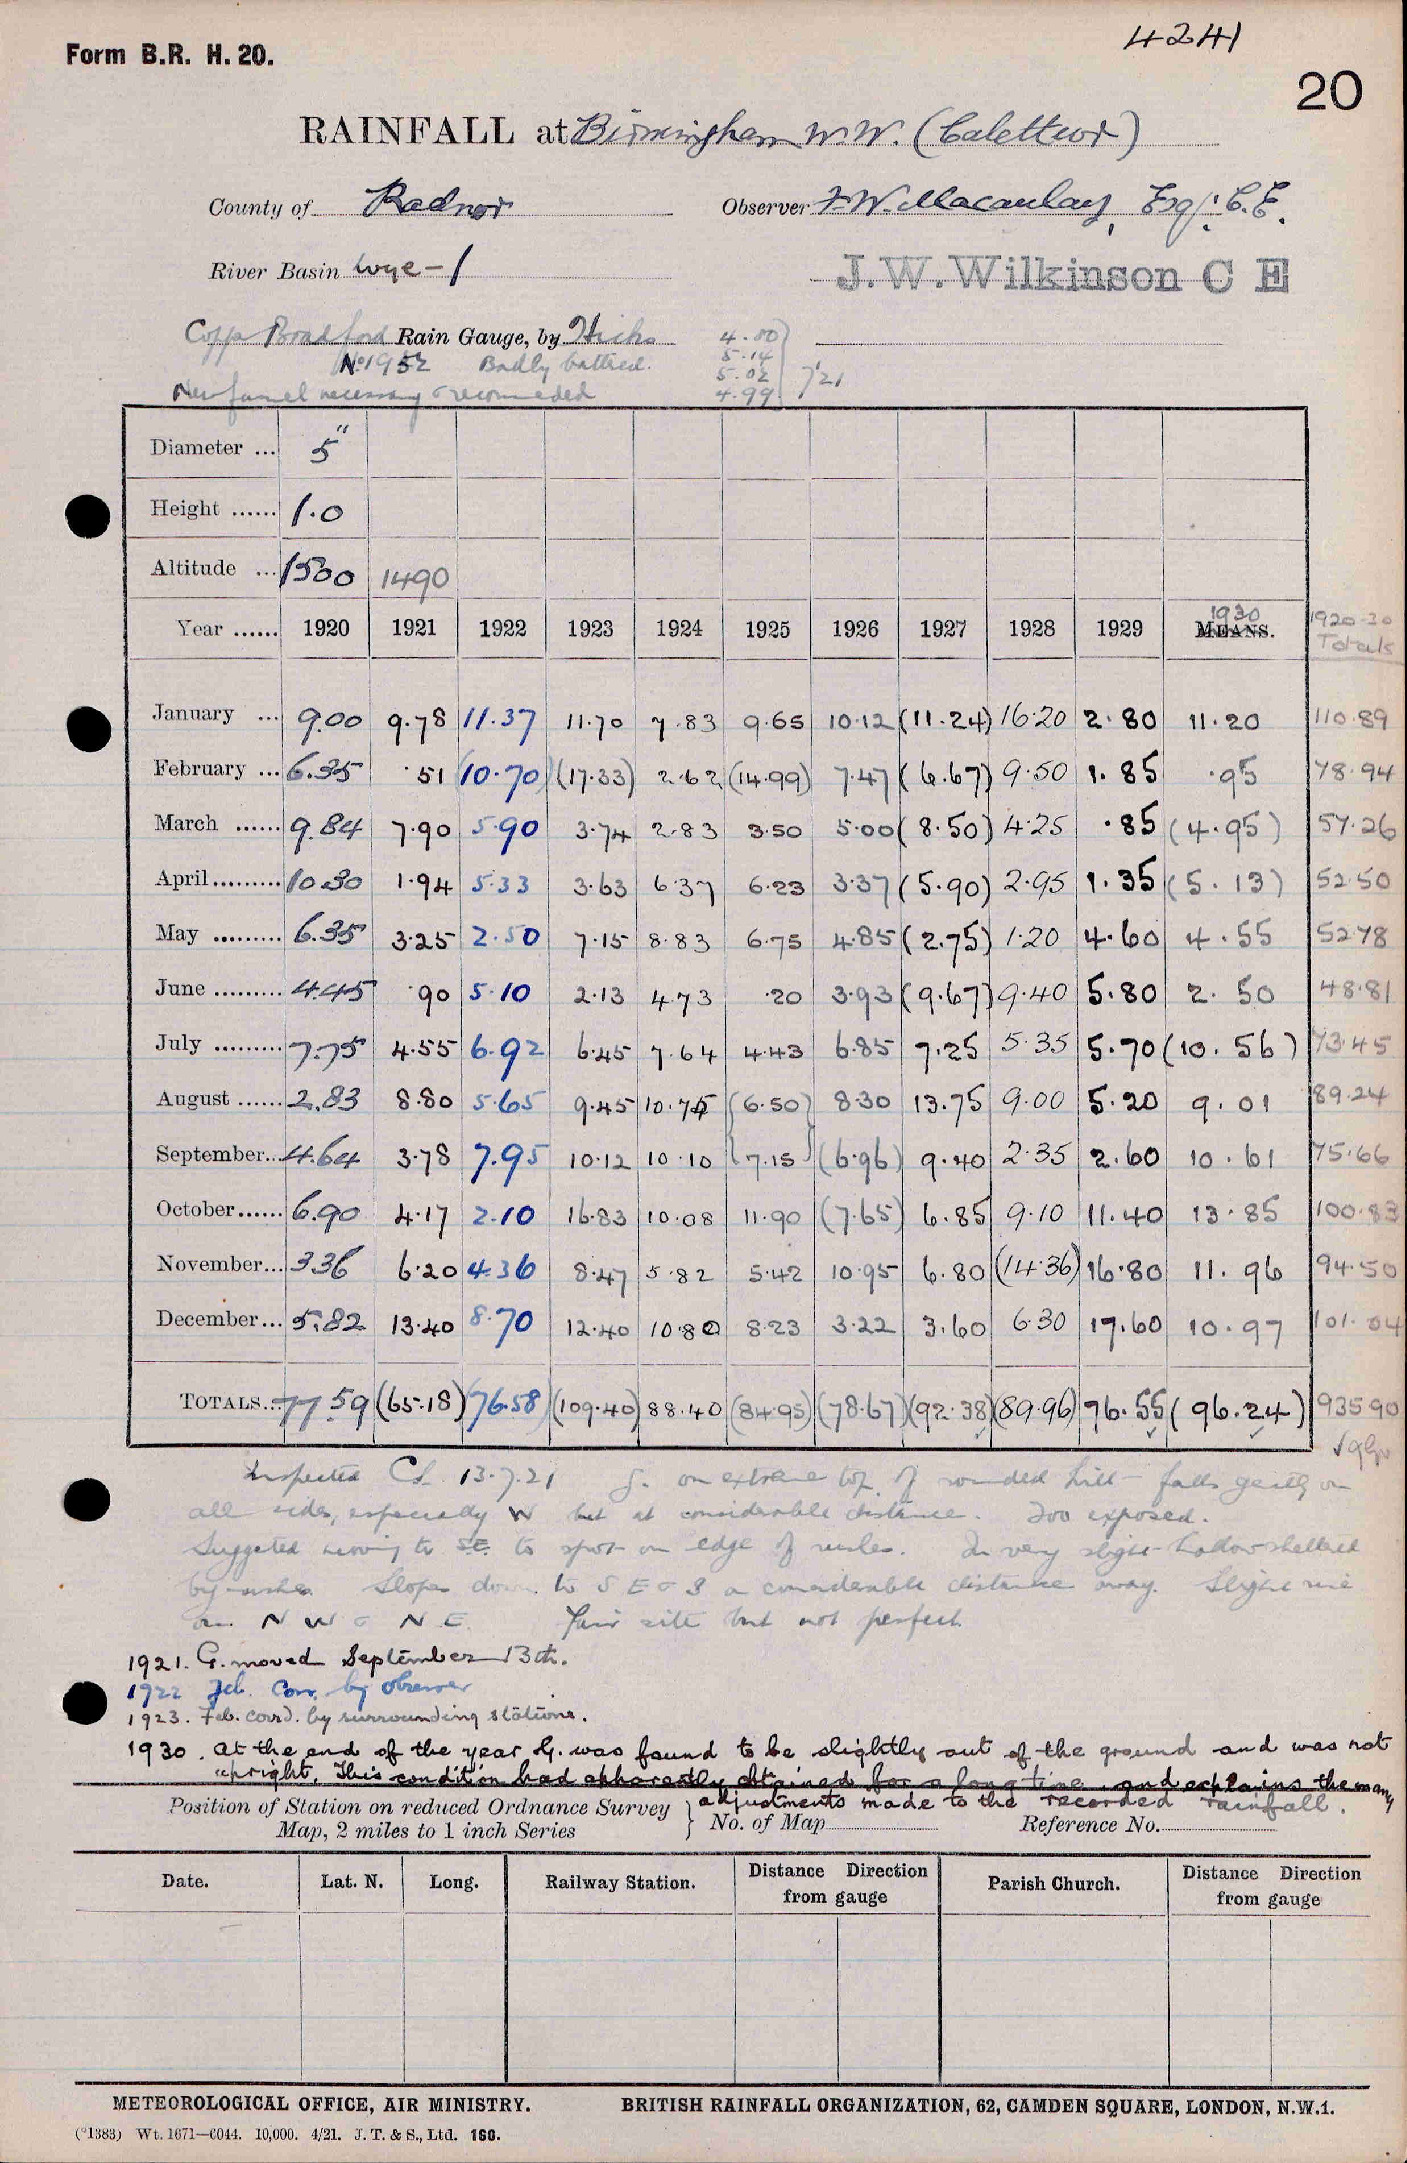 4241
Form B.R. H. 20.
20
RAINFALL at Birmingham W.W. (Calettwr)
County of Radnor Observer F.W. Macaulay, Esq., C.E.
River Basin Wye-1 J. W. Wilkinson C E
Copp Bradford Rain Gauge, by Hicks 4.80
No 1952 Badly battered. 5.14
5.02 7'21
New funnel necessary & recommended 4.99
Diameter ... 5"
Height ...... 1.0
Altitude ... 1500 1490
Year ...... 1920 1921 1922 1923 1924 1925 1926 1927 1928 1929 MEANS. 1930 1920-30 Totals
January ... 9.00 9.78 11.37 11.70 7.83 9.65 10.12 (11.24) 16.20 2.80 11.20 110.89
February ... 6.35 .51 (10.70) (17.33) 2.62 (14.99) 7.47 (6.67) 9.50 1.85 .95 78.94
March ...... 9.84 7.90 5.90 3.74 2.83 3.50 5.00 (8.50) 4.25 .85 (4.95) 57.26
April ......... 10.30 1.94 5.33 3.63 6.37 6.23 3.37 (5.90) 2.95 1.35 (5.13) 52.50
May ......... 6.35 3.25 2.50 7.15 8.83 6.75 4.85 (2.75) 1.20 4.60 4.55 52.78
June ......... 4.45 .90 5.10 2.13 4.73 .20 3.93 (9.67) 9.40 5.80 2.50 48.81
July ......... 7.75 4.55 6.92 6.45 7.64 4.43 6.85 7.25 5.35 5.70 (10.56) 73.45
August ...... 2.83 8.80 5.65 9.45 10.75 (6.50) 8.30 13.75 9.00 5.20 9.01 89.24
September... 4.64 3.78 7.95 10.12 10.10 (7.15) (6.96) 9.40 2.35 2.60 10.61 75.66
October...... 6.90 4.17 2.10 16.83 10.08 11.90 (7.65) 6.85 9.10 11.40 13.85 100.83
November... 3.36 6.20 4.36 8.47 5.82 5.42 10.95 6.80 (14.36) 16.80 11.96 94.50
December... 5.82 13.40 8.70 12.40 10.80 8.23 3.22 3.60 6.30 17.60 10.97 101.04
TOTALS... 77.59 (65.18) (76.58) (109.40) 88.40 (84.95) (78.67) (92.38) (89.96) 76.55 (96.24) 935.90
Inspected 13.7.21 G. on extreme top of rounded hill - falls gently on
all sides, especially W but at considerable distance. Too exposed.
Suggested moving to SE. to spot on edge of rushes. In very slight hollow sheltered
by rushes. Slopes down to S E & S a considerable distance away. Slight rise
on N W & N E. Fair site but not perfect.
1921. G. moved September 13th.
1922 Feb. Corr. by observer
1923. Feb. corrd. by surrounding stations.
1930. At the end of the year G. was found to be slightly out of the ground and was not
upright. This condition had apparently obtained for a long time, and explains the many
adjustments made to the recorded rainfall.
Position of Station on reduced Ordnance Survey
Map, 2 miles to 1 inch Series
No. of Map Reference No.
Date. Lat. N. Long. Railway Station. Distance Direction from gauge Parish Church. Distance Direction from gauge
METEOROLOGICAL OFFICE, AIR MINISTRY. BRITISH RAINFALL ORGANIZATION, 62, CAMDEN SQUARE, LONDON, N.W.1.
(*1383) Wt. 1671—6044. 10,000. 4/21. J. T. & S., Ltd. 160.